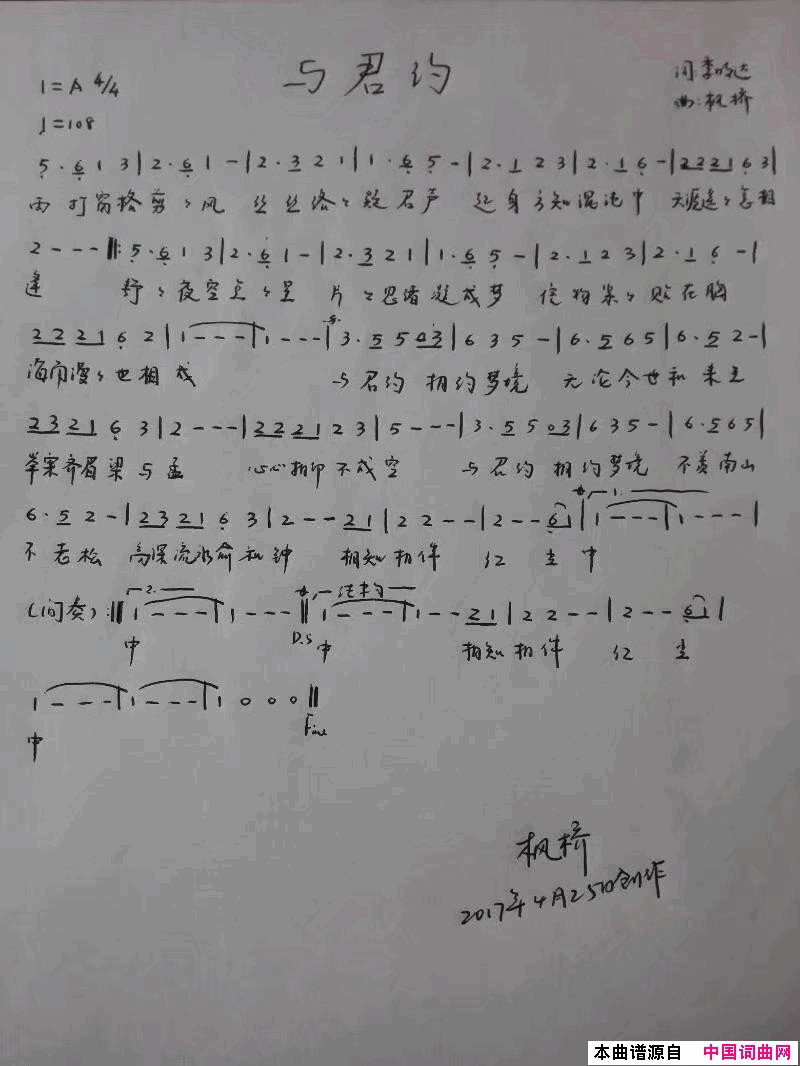 与君约
1=A 4/4
词:李
曲:枫桥
♩=108
5·6 1 3|2·6 1 -|2·3 2 1|1·6 5 -|2·1 2 3|2·1 6 -|2 2 2 1 6 3|
雨打窗格剪〻风 丝丝络〻疑君声 起身方知混沌中 天涯遥〻怎相
2 - - - ‖: 5·6 1 3|2·6 1 -|2·3 2 1|1·6 5 -|2·1 2 3|2·1 6 -|
逢 野〻夜空点〻星 片〻思绪凝成梦 信物〻贴在胸
2 2 2 1 6 2|1 - - -|1 - - -|3·5 5 0 3|6 3 5 -|6·5 6 5|6·5 2 -|
海角漫〻也相成 与君约 相约梦境 无论今世和来生
2 3 2 1 6 3|2 - - -|2 2 2 1 2 3|5 - - -|3·5 5 0 3|6 3 5 -|6·5 6 5|
举案齐眉梁与孟 心心相印不成空 与君约 相约梦境 不羡南山
6·5 2 -|2 3 2 1 6 3|2 - - 2 1|2 2 - -|2 - - 6 1|1. 1 - - -|1 - - -|
不老松 高深流水俞和钟 相知相伴 红尘中
(间奏):‖2. 1 - - -|1 - - -‖结构 1 - - -|1 - - 2 1|2 2 - -|2 - - 6 1|
中 D.S 中 相知相伴 红尘
1 - - -|1 - - -|1 0 0 0‖
中 Fine
枫桥
2017年4月25日创作
本曲谱源自 中国词曲网